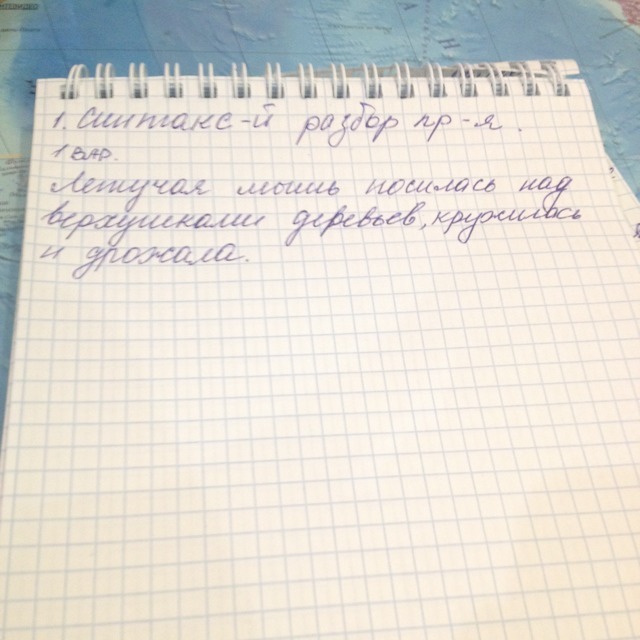 1. Синтакс-й разбор пр-я.
1 вар.
Летучая мышь носилась над
верхушками деревьев, кружилась
и дрожала.